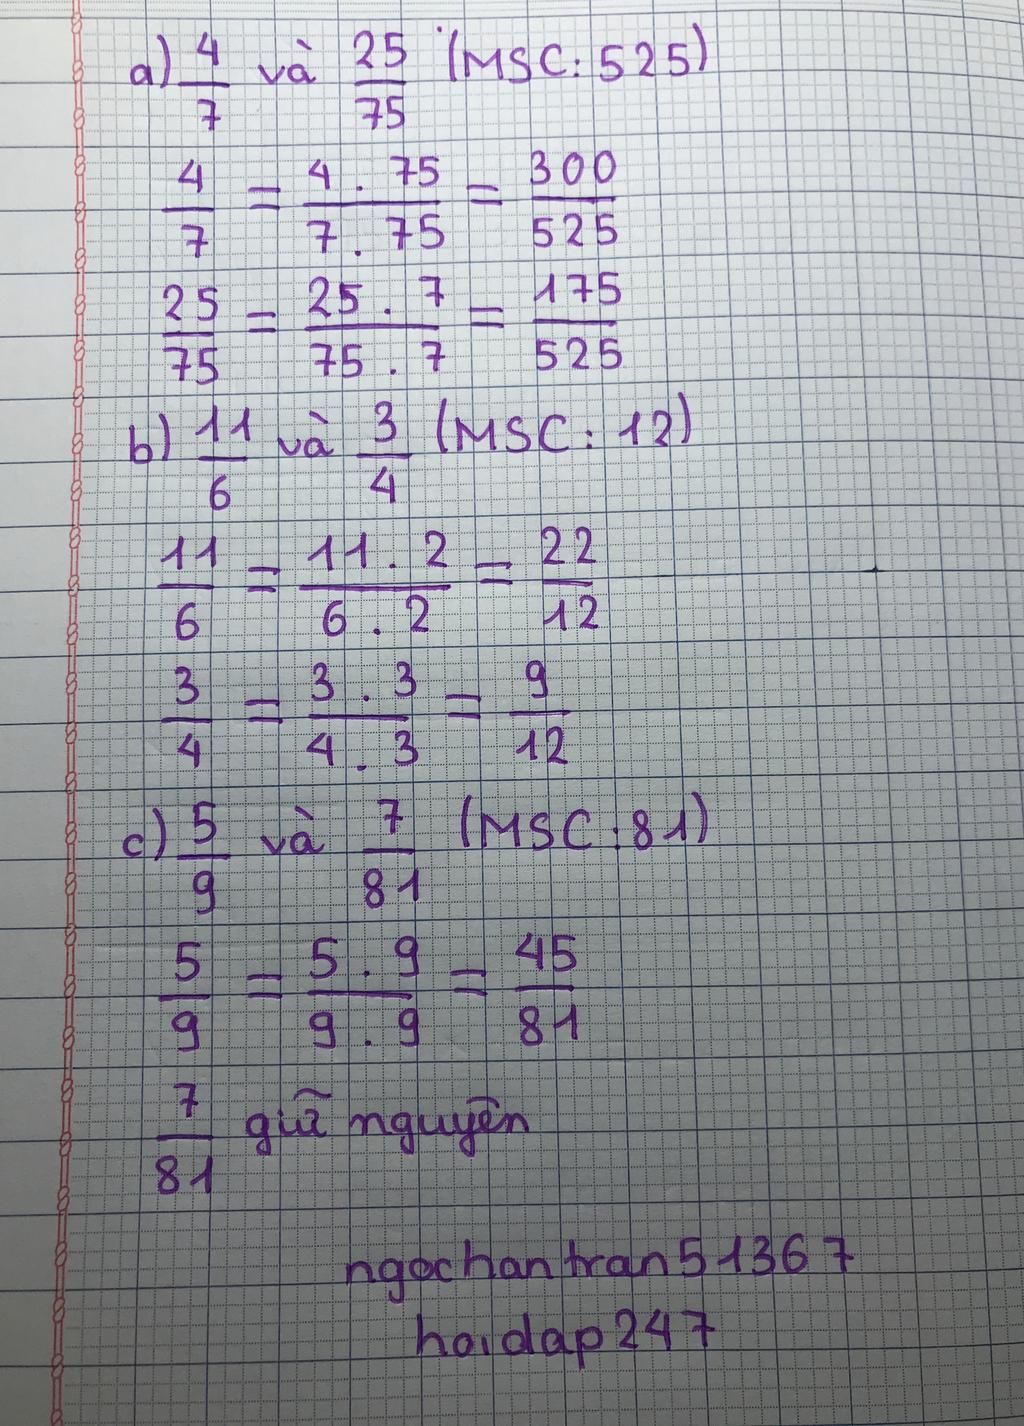 a) 4/7 và 25/75 (MSC: 525)
4/7 = 4 . 75/7 . 75 = 300/525
25/75 = 25 . 7/75 . 7 = 175/525
b) 11/6 và 3/4 (MSC: 12)
11/6 = 11 . 2/6 . 2 = 22/12
3/4 = 3 . 3/4 . 3 = 9/12
c) 5/9 và 7/81 (MSC: 81)
5/9 = 5 . 9/9 . 9 = 45/81
7/81 giữ nguyên
ngochantran51367
hoidap247